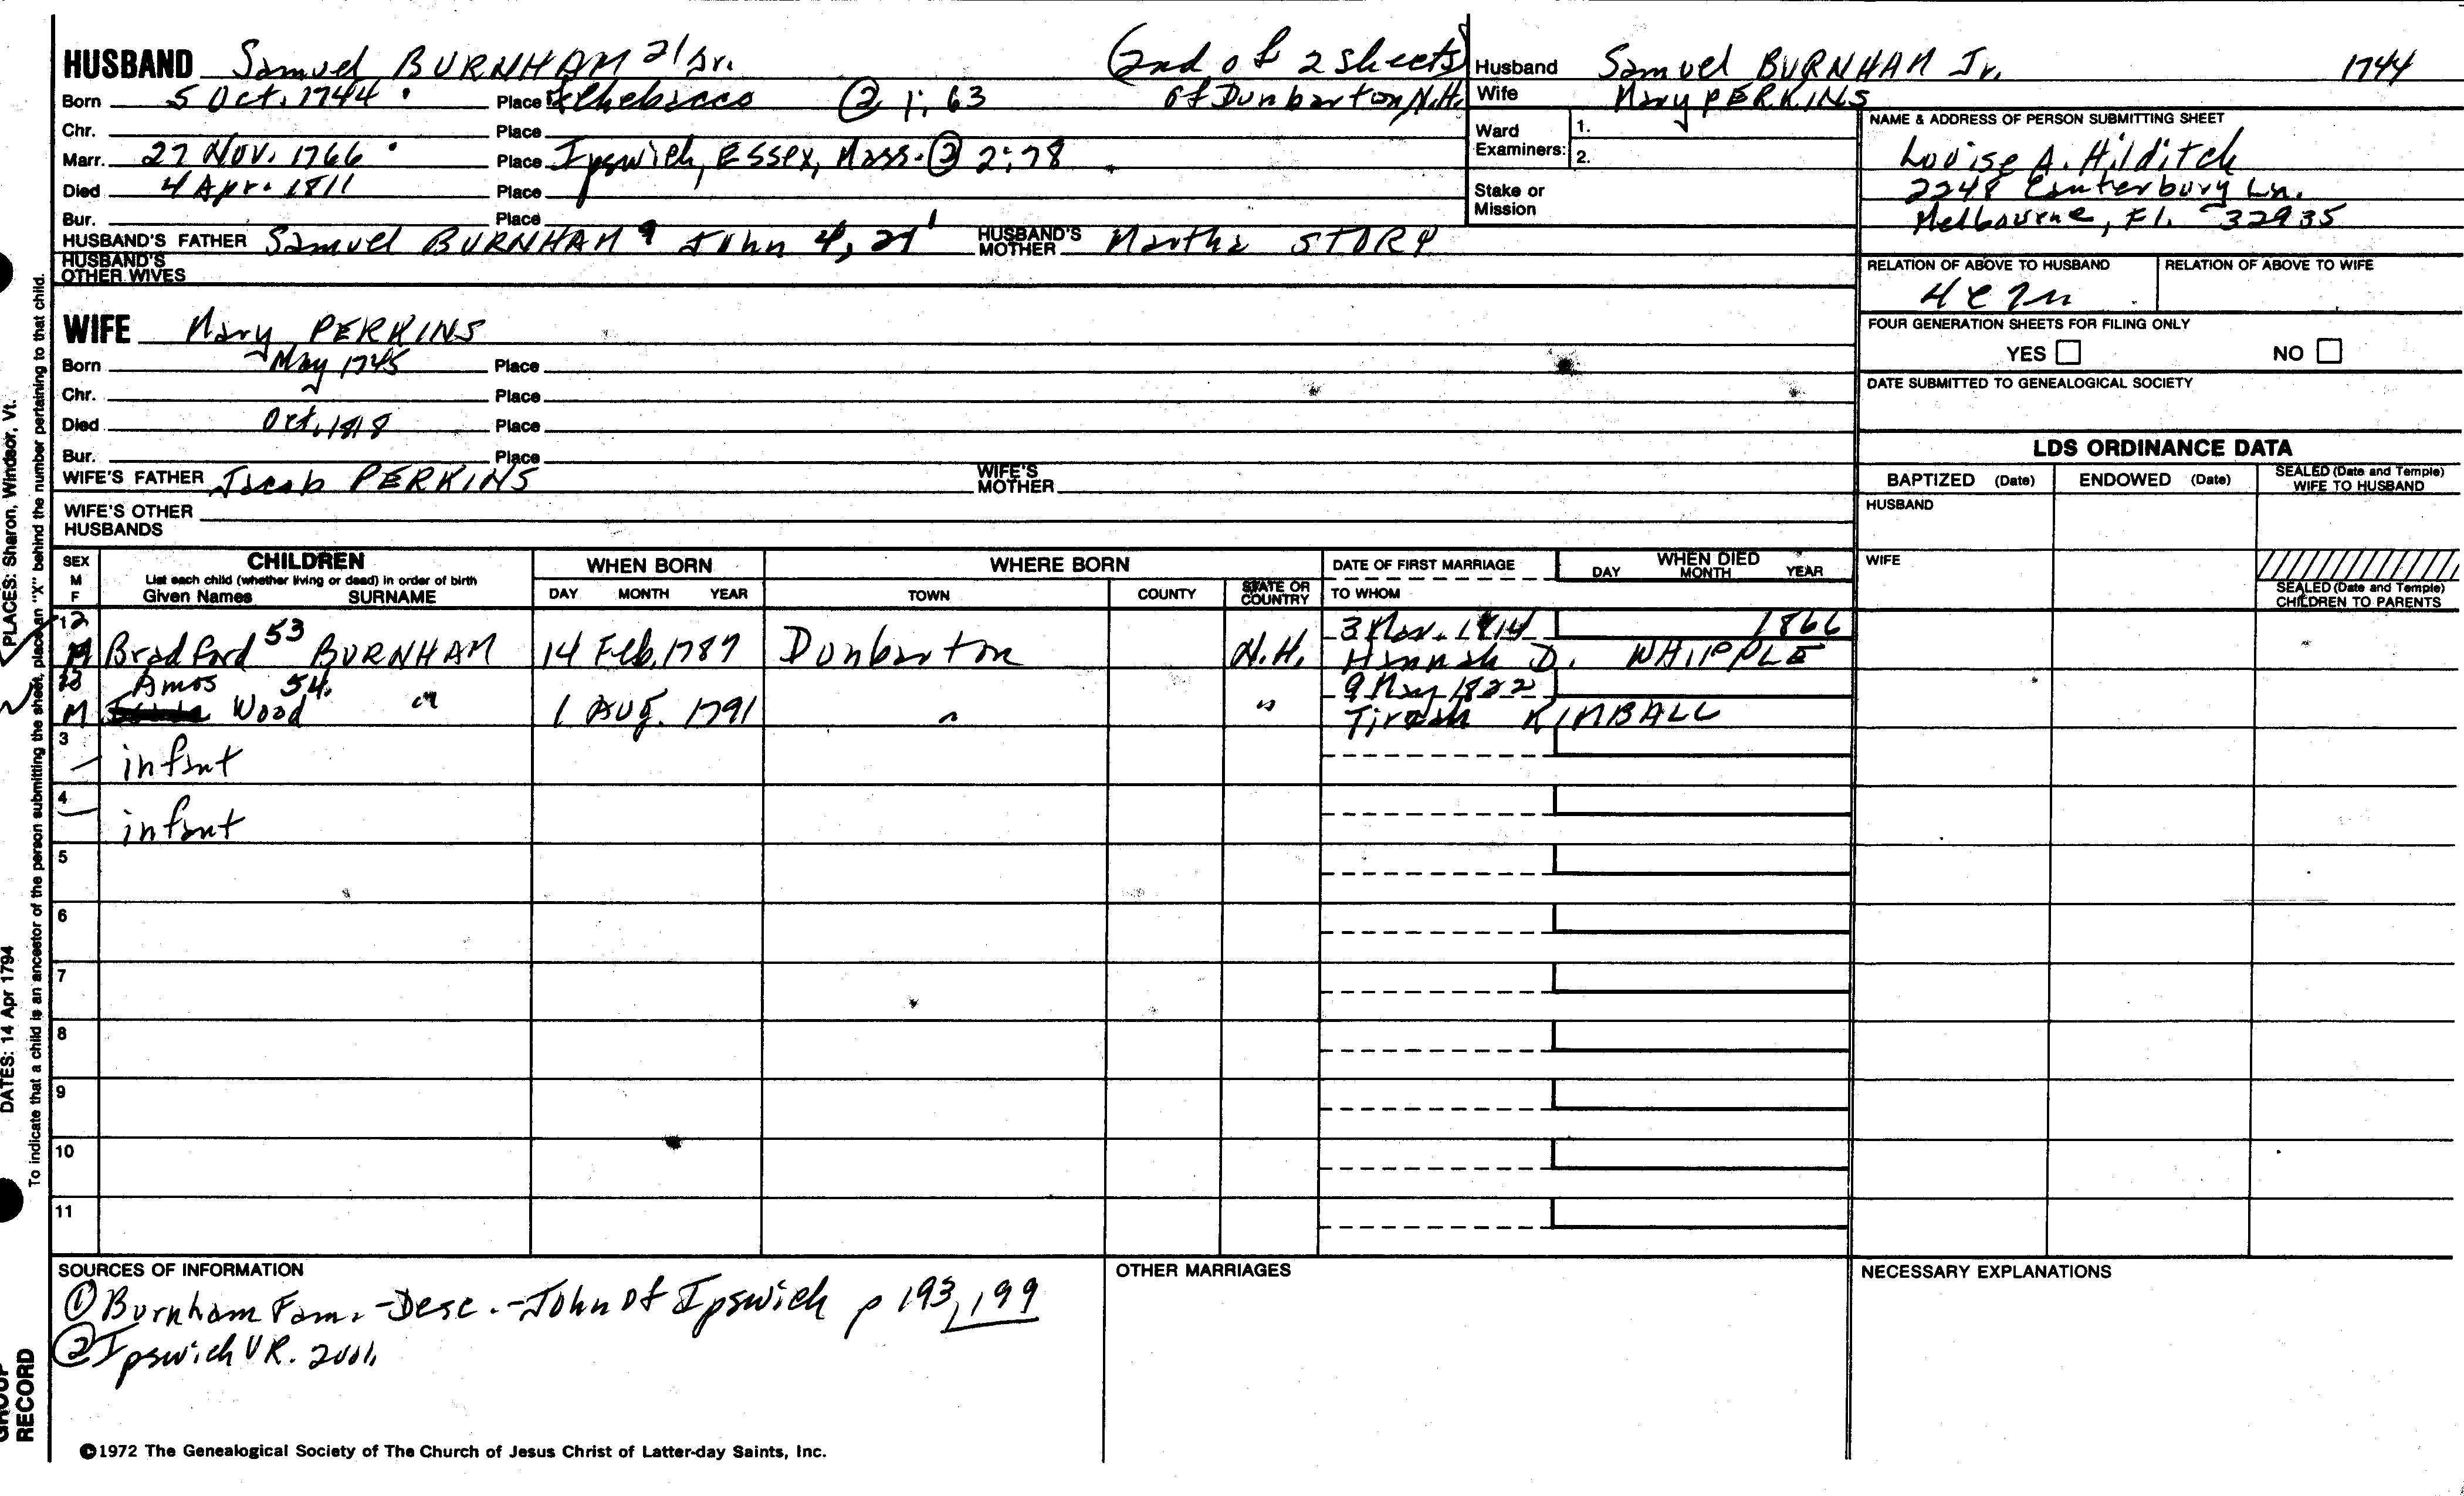 HUSBAND Samuel BURNHAM 21 Jr. (2nd of 2 sheets)
Born 5 Oct. 1744 Place Chebacco ② 1:63 of Dunbarton, N.H.
Chr. Place
Marr. 27 Nov. 1766 Place Ipswich, Essex, Mass. ② 2:78
Died 4 Apr. 1811 Place
Bur. Place
HUSBAND'S FATHER Samuel BURNHAM 9 John 4, 2, 1 HUSBAND'S MOTHER Martha STORY
HUSBAND'S OTHER WIVES
WIFE Mary PERKINS
Born May 1745 Place
Chr. Place
Died Oct. 1818 Place
Bur. Place
WIFE'S FATHER Jacob PERKINS WIFE'S MOTHER
WIFE'S OTHER HUSBANDS
Husband Samuel BURNHAM Jr. 1744
Wife Mary PERKINS
Ward Examiners: 1.
2.
Stake or Mission
NAME & ADDRESS OF PERSON SUBMITTING SHEET
Louise A. Hilditch
2248 Canterbury Ln.
Melbourne, Fl. 32935
RELATION OF ABOVE TO HUSBAND RELATION OF ABOVE TO WIFE
FOUR GENERATION SHEETS FOR FILING ONLY
YES NO
DATE SUBMITTED TO GENEALOGICAL SOCIETY
LDS ORDINANCE DATA
BAPTIZED (Date) ENDOWED (Date) SEALED (Date and Temple) WIFE TO HUSBAND
HUSBAND
WIFE
SEALED (Date and Temple) CHILDREN TO PARENTS
SEX M F
CHILDREN
List each child (whether living or dead) in order of birth
Given Names SURNAME
WHEN BORN
DAY MONTH YEAR
WHERE BORN
TOWN COUNTY STATE OR COUNTRY
DATE OF FIRST MARRIAGE
TO WHOM
WHEN DIED
DAY MONTH YEAR
12 3 Nov. 1814 1866
M Bradford 53 BURNHAM 14 Feb. 1787 Dunbarton N.H. Hannah D. WHIPPLE
13 Amos 54. 9 May 1822
M Wood " 1 Aug. 1791 " " Tirzah KIMBALL
3 infant
4 infant
5
6
7
8
9
10
11
SOURCES OF INFORMATION
① Burnham Fam. - Desc. - John of Ipswich p 193, 199
② Ipswich VR.
OTHER MARRIAGES
NECESSARY EXPLANATIONS
©1972 The Genealogical Society of The Church of Jesus Christ of Latter-day Saints, Inc.
PLACES: Sharon, Windsor, Vt.
DATES: 14 Apr 1794
To indicate that a child is an ancestor of the person submitting the sheet, place an "X" behind the number pertaining to that child.
GROUP
RECORD